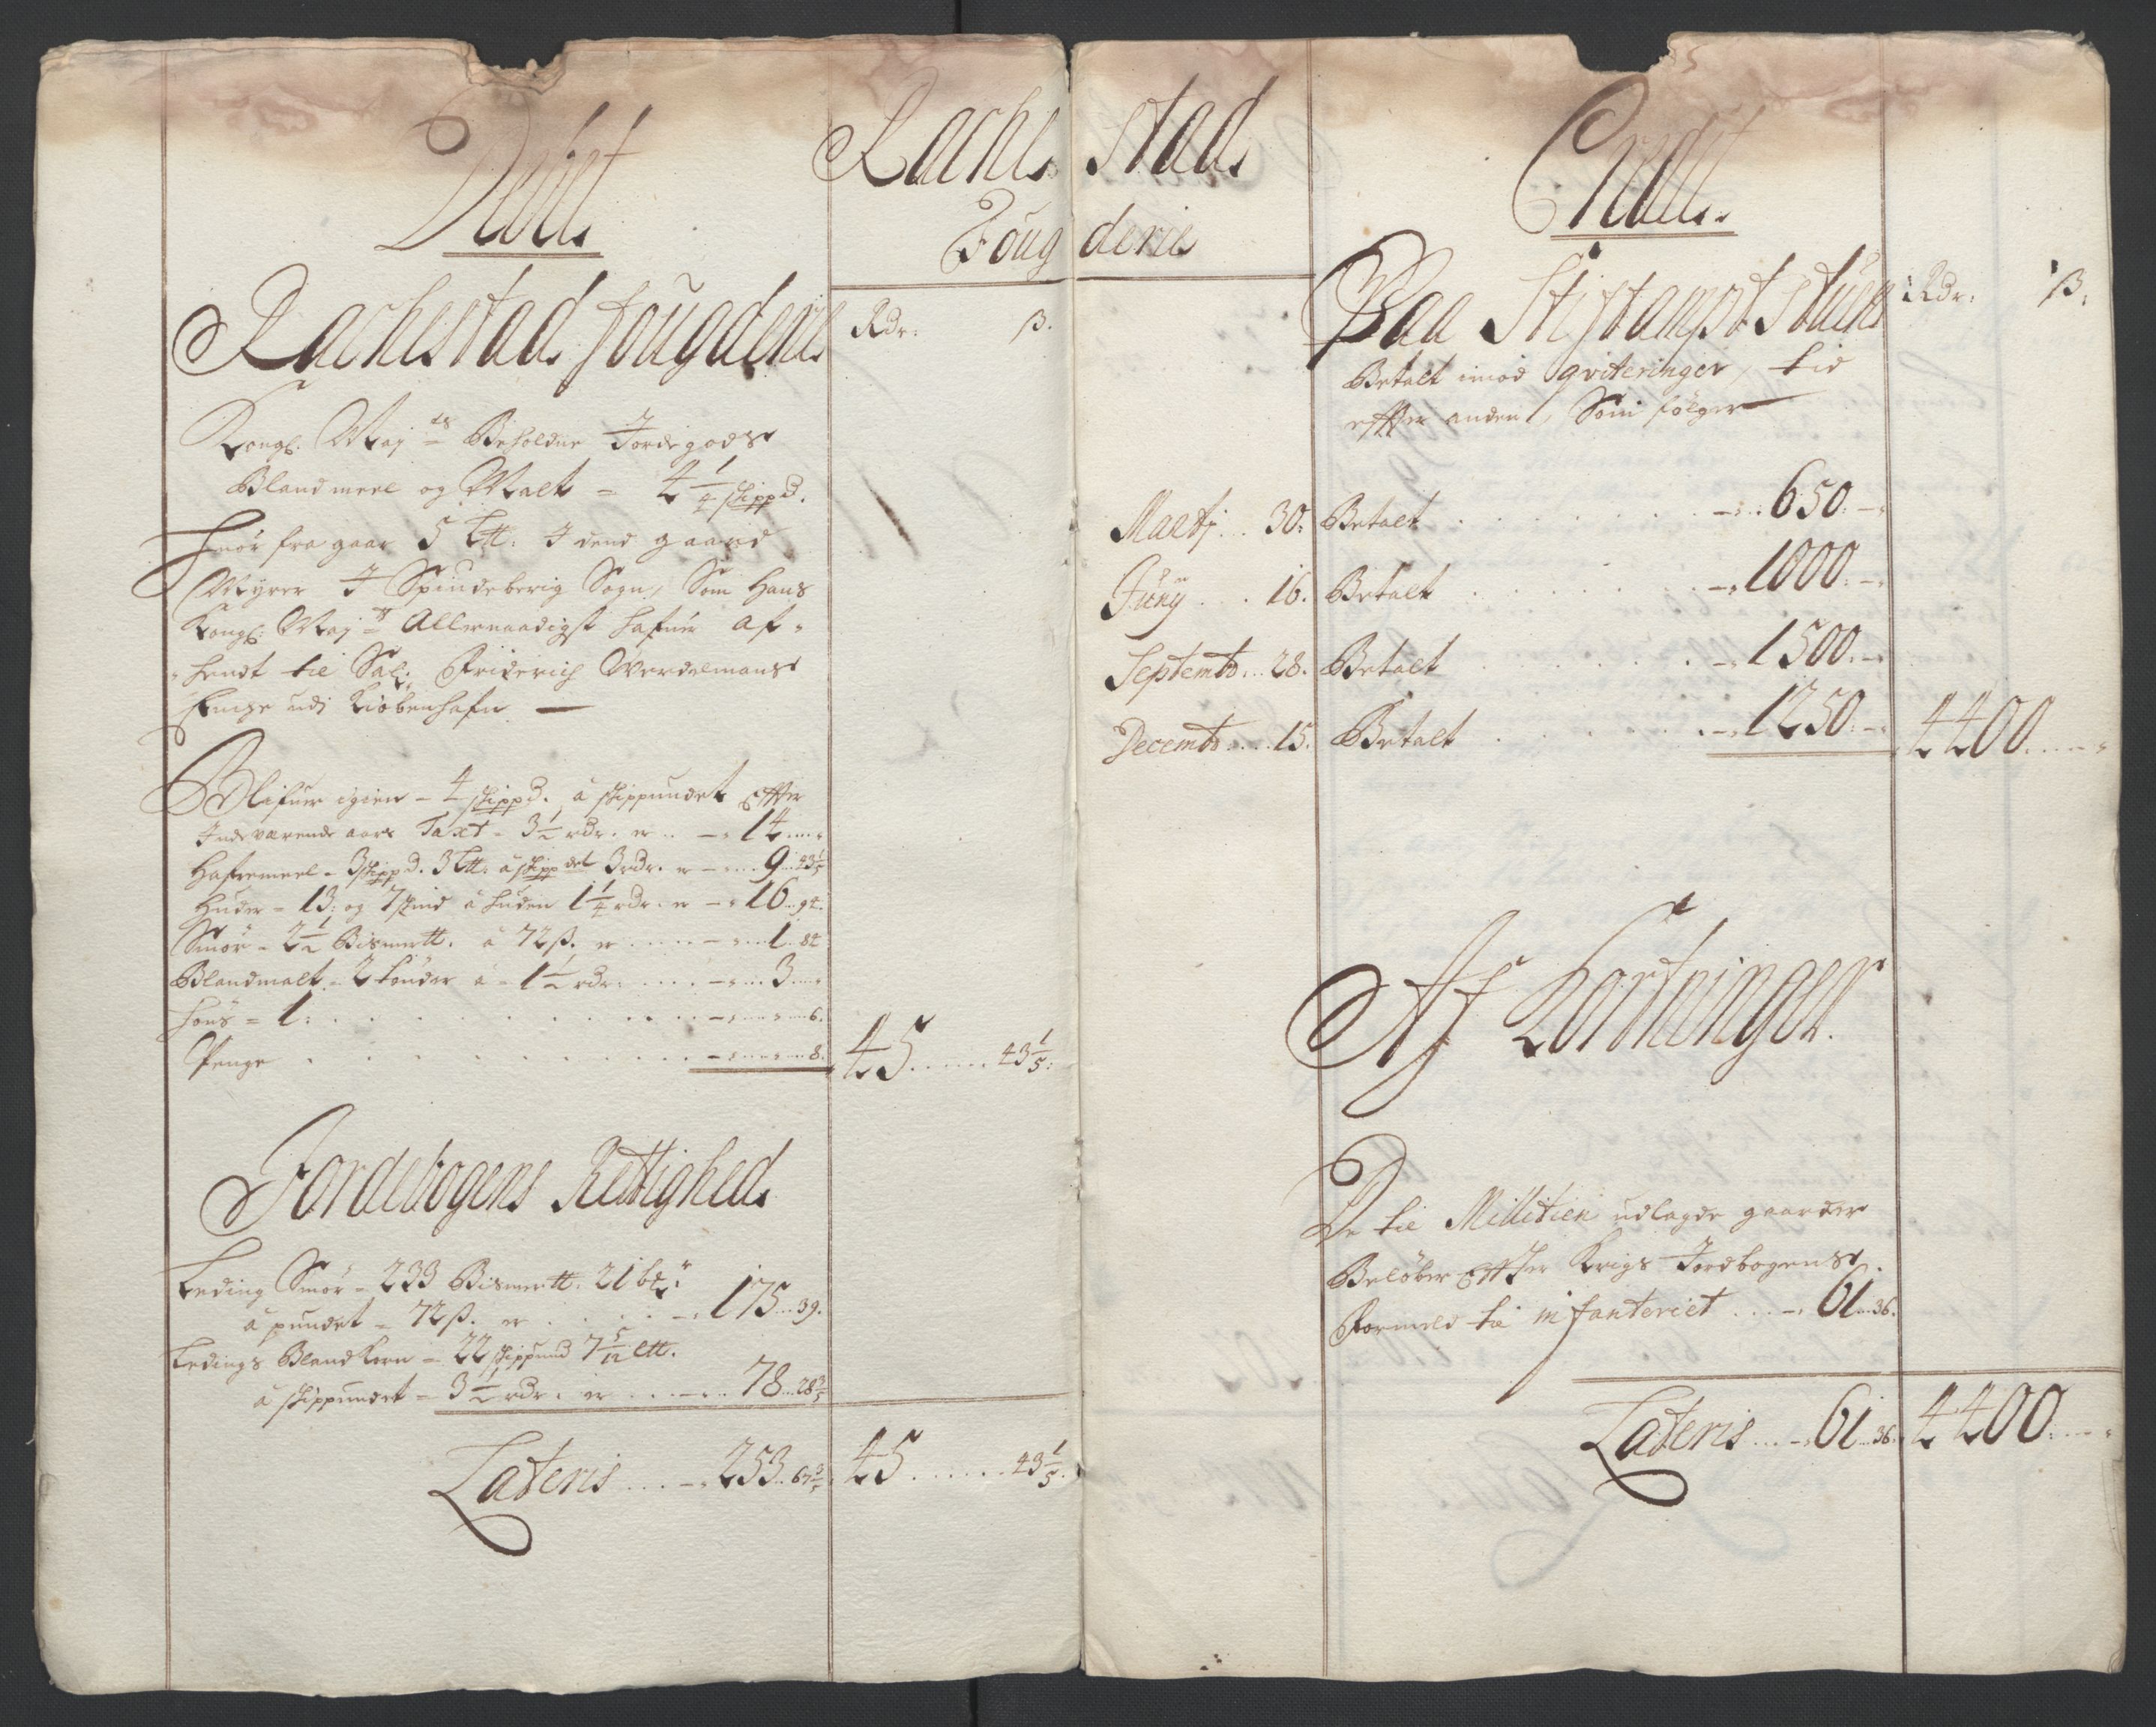 Debet
Rachestads
Fougderie
Rachestads fougderie
Rdr: ß.
Kongl. Maj ts Beholdne Jordegods
Blandmeel og Malt = 4 1/4 skippd.
Huor fra gaar 5 Ltt. J dend gaard
Myrer J Spindeberig Sogn, Som Hans
Kongl: Maj ts Allernaadigst hafuer af-
hendt til Sal: Friderich Werdelmans
Enche udj Kiøbenhafn —
Blifuer igien - 4 skippd. â skippundet Effter
Indeværende aars Taxt - 3 1/2 rdr. er .. - 14 ....
Hafremeel - 3 skippd. 3 Ltt: â skippdet 3 rdr. er - 9 .. 43 1/5
Huder = 13: og 7 skind â huden 1 1/4 rdr. er - 16 .. 94.
Smør - 2 1/2 Bismertt. â 72 ß. er .... - 1 .. 84
Blandmalt - 2 tønder â - 1 1/2 rdr: .... - 3 ....
Høns = 1: . . . . - 6.
Penge . . . . - 8. 45 ...... 43 1/5:
Jordebogens Rettighed
Leding Smør - 233 Bismertt. 21 
â pundet = 72 ß. er . . . . - 175 ... 39.
Ledings Blandkorn = 22 skippund 7 5/12 Ltt.
â skippundet = 3 1/2 rdr. er .... - 78 ... 28 3/5
Lateris .... - 253 .. 67 3/5 45 ....... 43 1/5.
Credit.
Paa Stiftampt stuen Rdr: ß:
Betalt imod qviteringer, tid
effter anden, Som følger
Martj ... 30: Betalt . . . . - 650. -
Junij ... 16. Betalt . . . . - 1000. -
Septembr ... 28. Betalt . . . . - 1500. -
Decembr .... 15. Betalt . . . . - 1250. - 4400. ... -
Af Kortninger.
De til Militien udlagde gaarder
Beløber Effter Krigs Jordbogens
Formeld til infanteriet .... - 61 .. 36.
Lateris .... - 61 .. 36. 4400. ... -